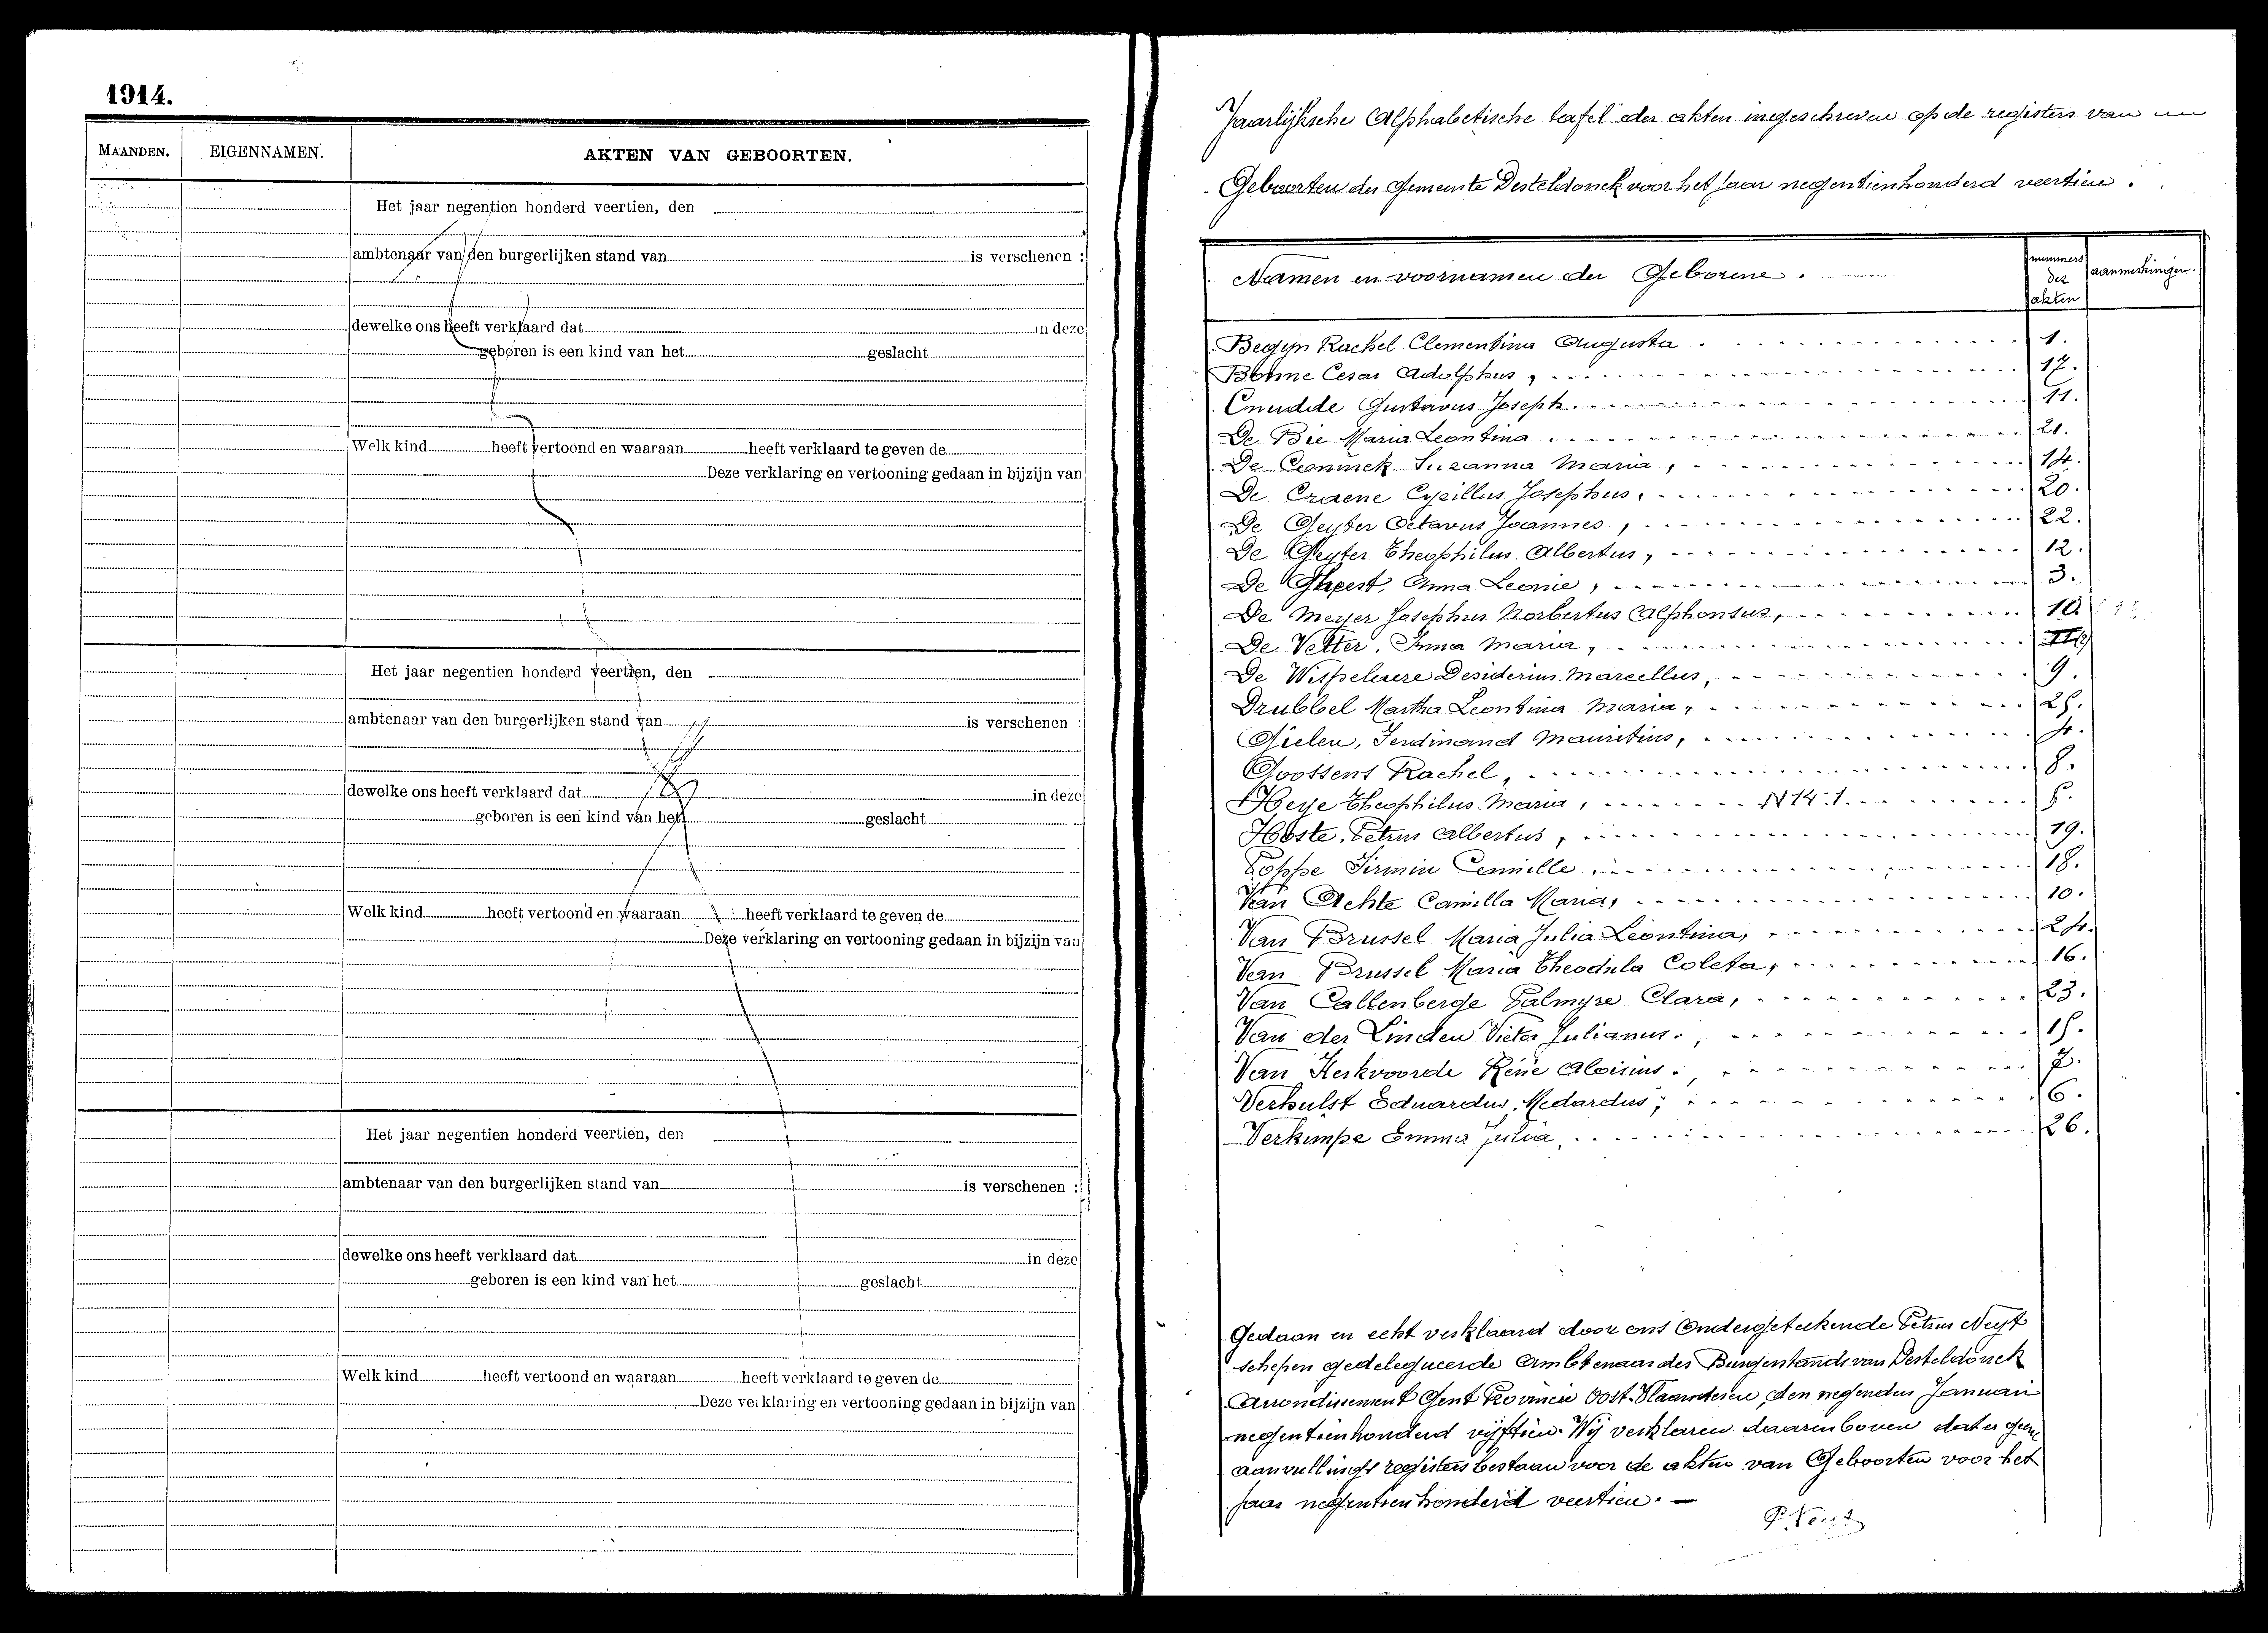 1914.
MAANDEN. EIGENNAMEN. AKTEN VAN GEBOORTEN.
Het jaar negentien honderd veertien, den
ambtenaar van den burgerlijken stand van is verschenen :
dewelke ons heeft verklaard dat in deze
geboren is een kind van het geslacht
Welk kind heeft vertoond en waaraan heeft verklaard te geven de
Deze verklaring en vertooning gedaan in bijzijn van
Het jaar negentien honderd veertien, den
ambtenaar van den burgerlijken stand van is verschenen :
dewelke ons heeft verklaard dat in deze
geboren is een kind van het geslacht
Welk kind heeft vertoond en waaraan heeft verklaard te geven de
Deze verklaring en vertooning gedaan in bijzijn van
Het jaar negentien honderd veertien, den
ambtenaar van den burgerlijken stand van is verschenen :
dewelke ons heeft verklaard dat in deze
geboren is een kind van het geslacht
Welk kind heeft vertoond en waaraan heeft verklaard te geven de
Deze verklaring en vertooning gedaan in bijzijn van
Jaarlijksche Alphabetische tafel der akten ingeschreven op de registers van
Geboorten der Gemeente Desteldonck voor het jaar negentienhonderd veertien.
Namen en voornamen der Geborene. nummers der akten aanmerkingen.
Begyn Rachel Clementina Augusta 1.
Böhme Cesar Adolphus, 17.
Cnudde Gustavus Joseph. 11.
De Bie Maria Leontina 21.
De Coninck Suzanna Maria, 14.
De Craene Cyrillus Josephus, 20.
De Geyter Octavus Joannes, 22.
De Geyter Theophilus Albertus, 12.
De Gheest, Anna Leonie, 3.
De Meyer Josephus Norbertus Alphonsus,
De Vetter, Irma Maria,
De Wispelaere Desiderius Marcellus, 9.
Drubbel Martha Leontina Maria, 25.
Gielen, Ferdinand Mauritius, 4.
Goossens Rachel, 8.
Heye Theophilus Maria, 5.
Hoste, Petrus Albertus, 19.
Poppe Firmin Camille, 18.
Van Achte Camilla Maria, 10.
Van Brussel Maria Julia Leontina, 24.
Van Brussel Maria Theodula Coleta, 16.
Van Callenberge Palmyre Clara, 23.
Van der Linden Victor Julianus, 15.
Van Kerkvoorde René Aloisius, 7.
Verhulst Eduardus Medardus, 6.
Verkimpe Emma Julia, 26.
Gedaan en echt verklaard door ons Ondergeteekende Petrus Neyt
schepen gedelegueerde Ambtenaar des Burgerstands van Desteldonck
Arrondissement Gent Provincie Oost-Vlaanderen, den negenden Januari
negentienhonderd vijftien. Wij verklaren daarenboven dat er geen
aanvullings registers bestaan voor de akten van Geboorten voor het
jaar negentienhonderd veertien. —
P. Neyt